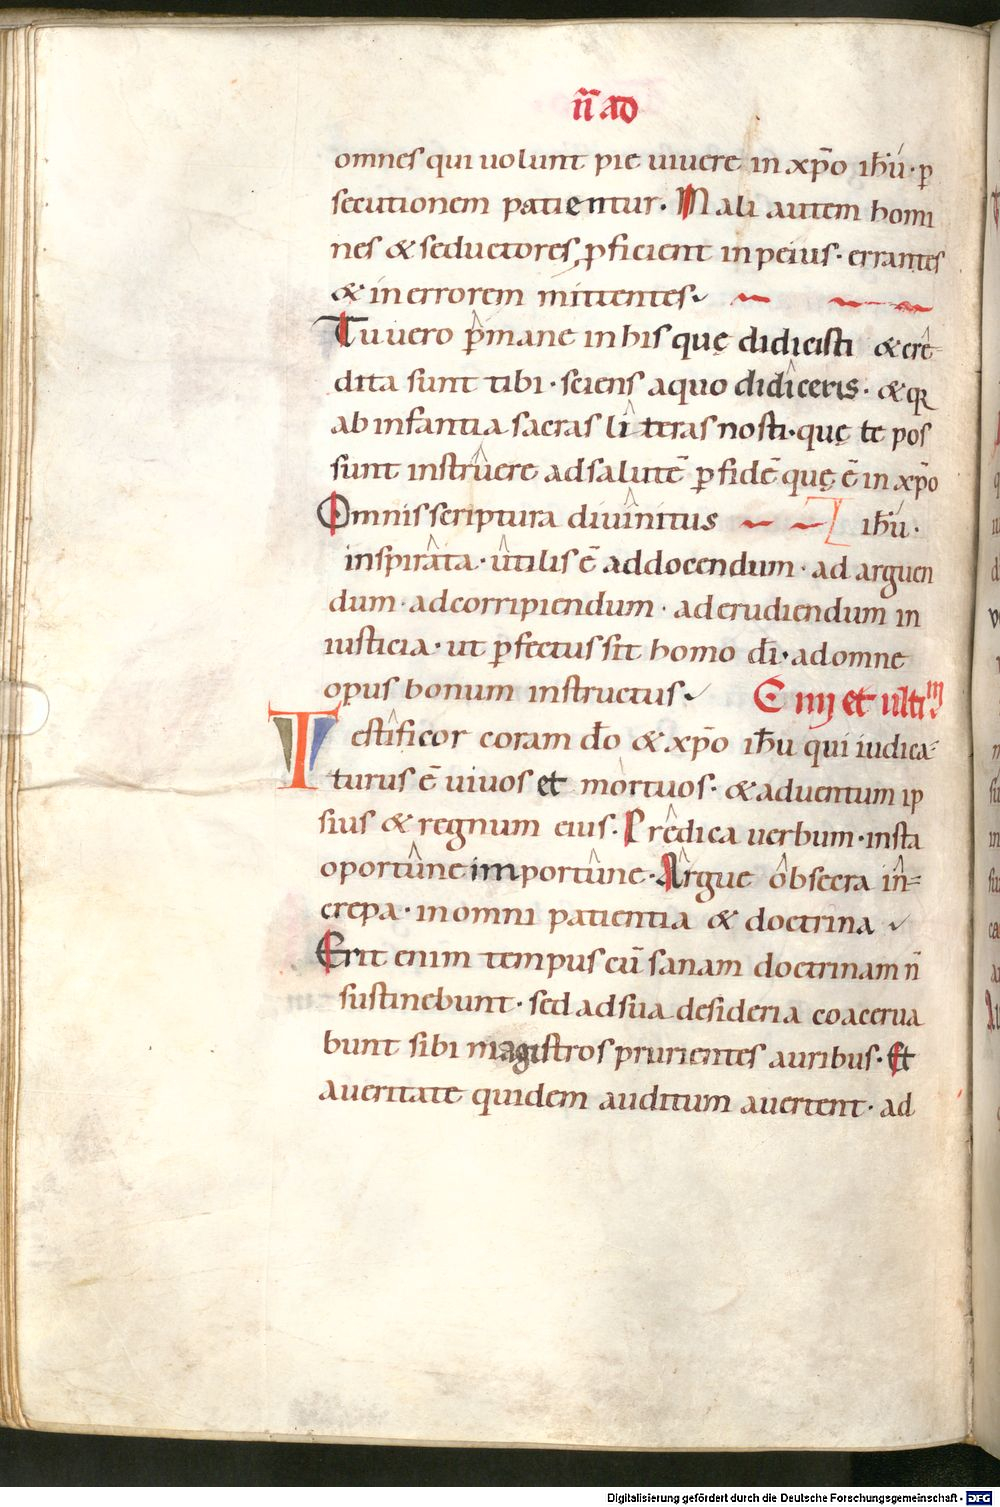 ñ ad
omnes qui uolunt pie uiuere in xp̃o ih̃u · ꝑ
secutionem patientur. Mali autem homi
nes & seductores ꝓficient in peius · errantes
& in errorem mittentes
Tu uero ꝑmane in his quę didicisti & cre
dita sunt tibi · sciens a quo didiceris · &
ab infantia sacras litteras nosti · quę te pos
sunt instruere ad salutẽ ꝑ fidẽ quę ẽ in xp̃o
Omnis scriptura diuinitus ih̃u ·
inspirata · utilis ẽ ad docendum · ad arguen
dum · ad corripiendum · ad erudiendum in
iusticia · ut ꝑfectus sit homo di̅ · ad omne
opus bonum instructus
C iiij et ulti m
Testificor coram do̅ & xp̃o ih̃u qui iudica
turus ẽ uiuos et mortuos · & aduentum ip
sius & regnum eius · Predica uerbum · insta
oportune importune · Argue obsecra in
crepa · in omni patientia & doctrina
Erit enim tempus cũ sanam doctrinam ñ
sustinebunt · sed ad sua desideria coacerua
bunt sibi magistros prurientes auribus · Et
a ueritate quidem auditum auertent · ad
Digitalisierung gefördert durch die Deutsche Forschungsgemeinschaft - DFG